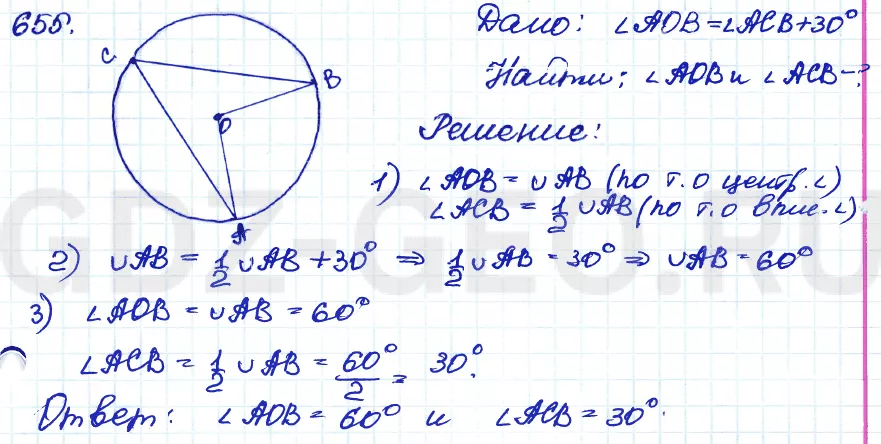 655.
Дано: ∠AOB = ∠ACB + 30°
Найти: ∠AOB и ∠ACB - ?
Решение:
C
B
O
A
1) ∠AOB = ∪AB (по т. о центр. ∠)
∠ACB = 1/2 ∪AB (по т. о впис. ∠)
2) ∪AB = 1/2 ∪AB + 30° ⇒ 1/2 ∪AB = 30° ⇒ ∪AB = 60°
3) ∠AOB = ∪AB = 60°
∠ACB = 1/2 ∪AB = 60°/2 = 30°.
Ответ: ∠AOB = 60° и ∠ACB = 30°.
GDZ-GEO.RU